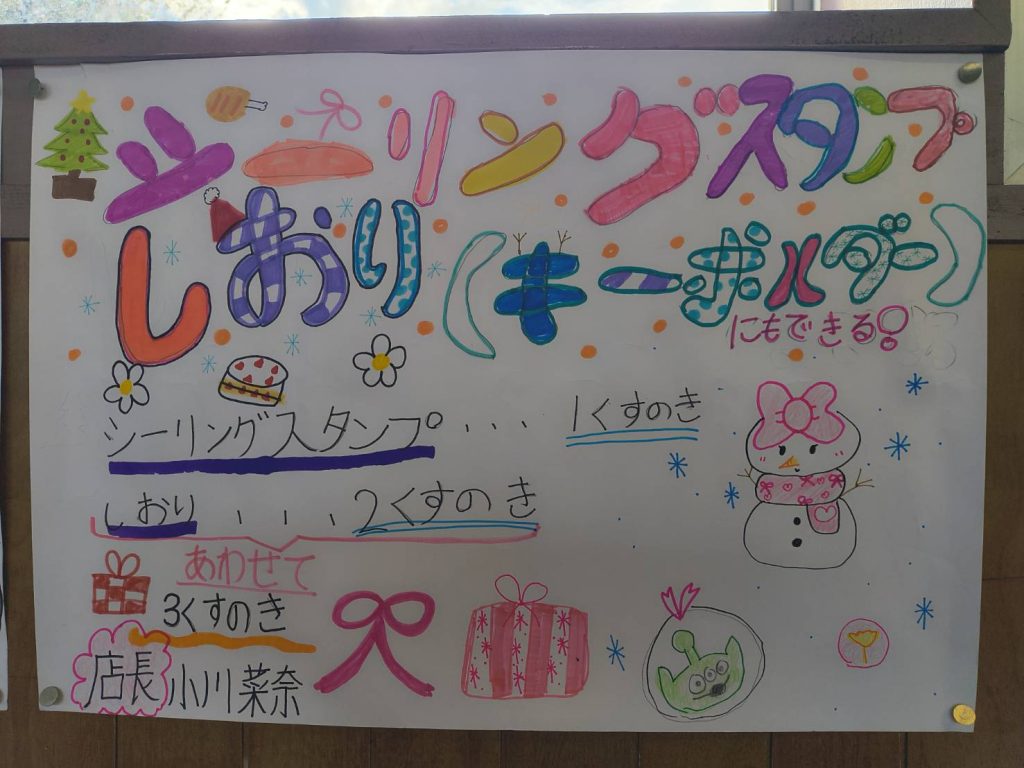 シーリングスタンプ
しおり(キーホルダー)
にもできる!
シーリングスタンプ... 1くすのき
しおり、、、、2くすのき
あわせて
3くすのき
店長 小川菜奈